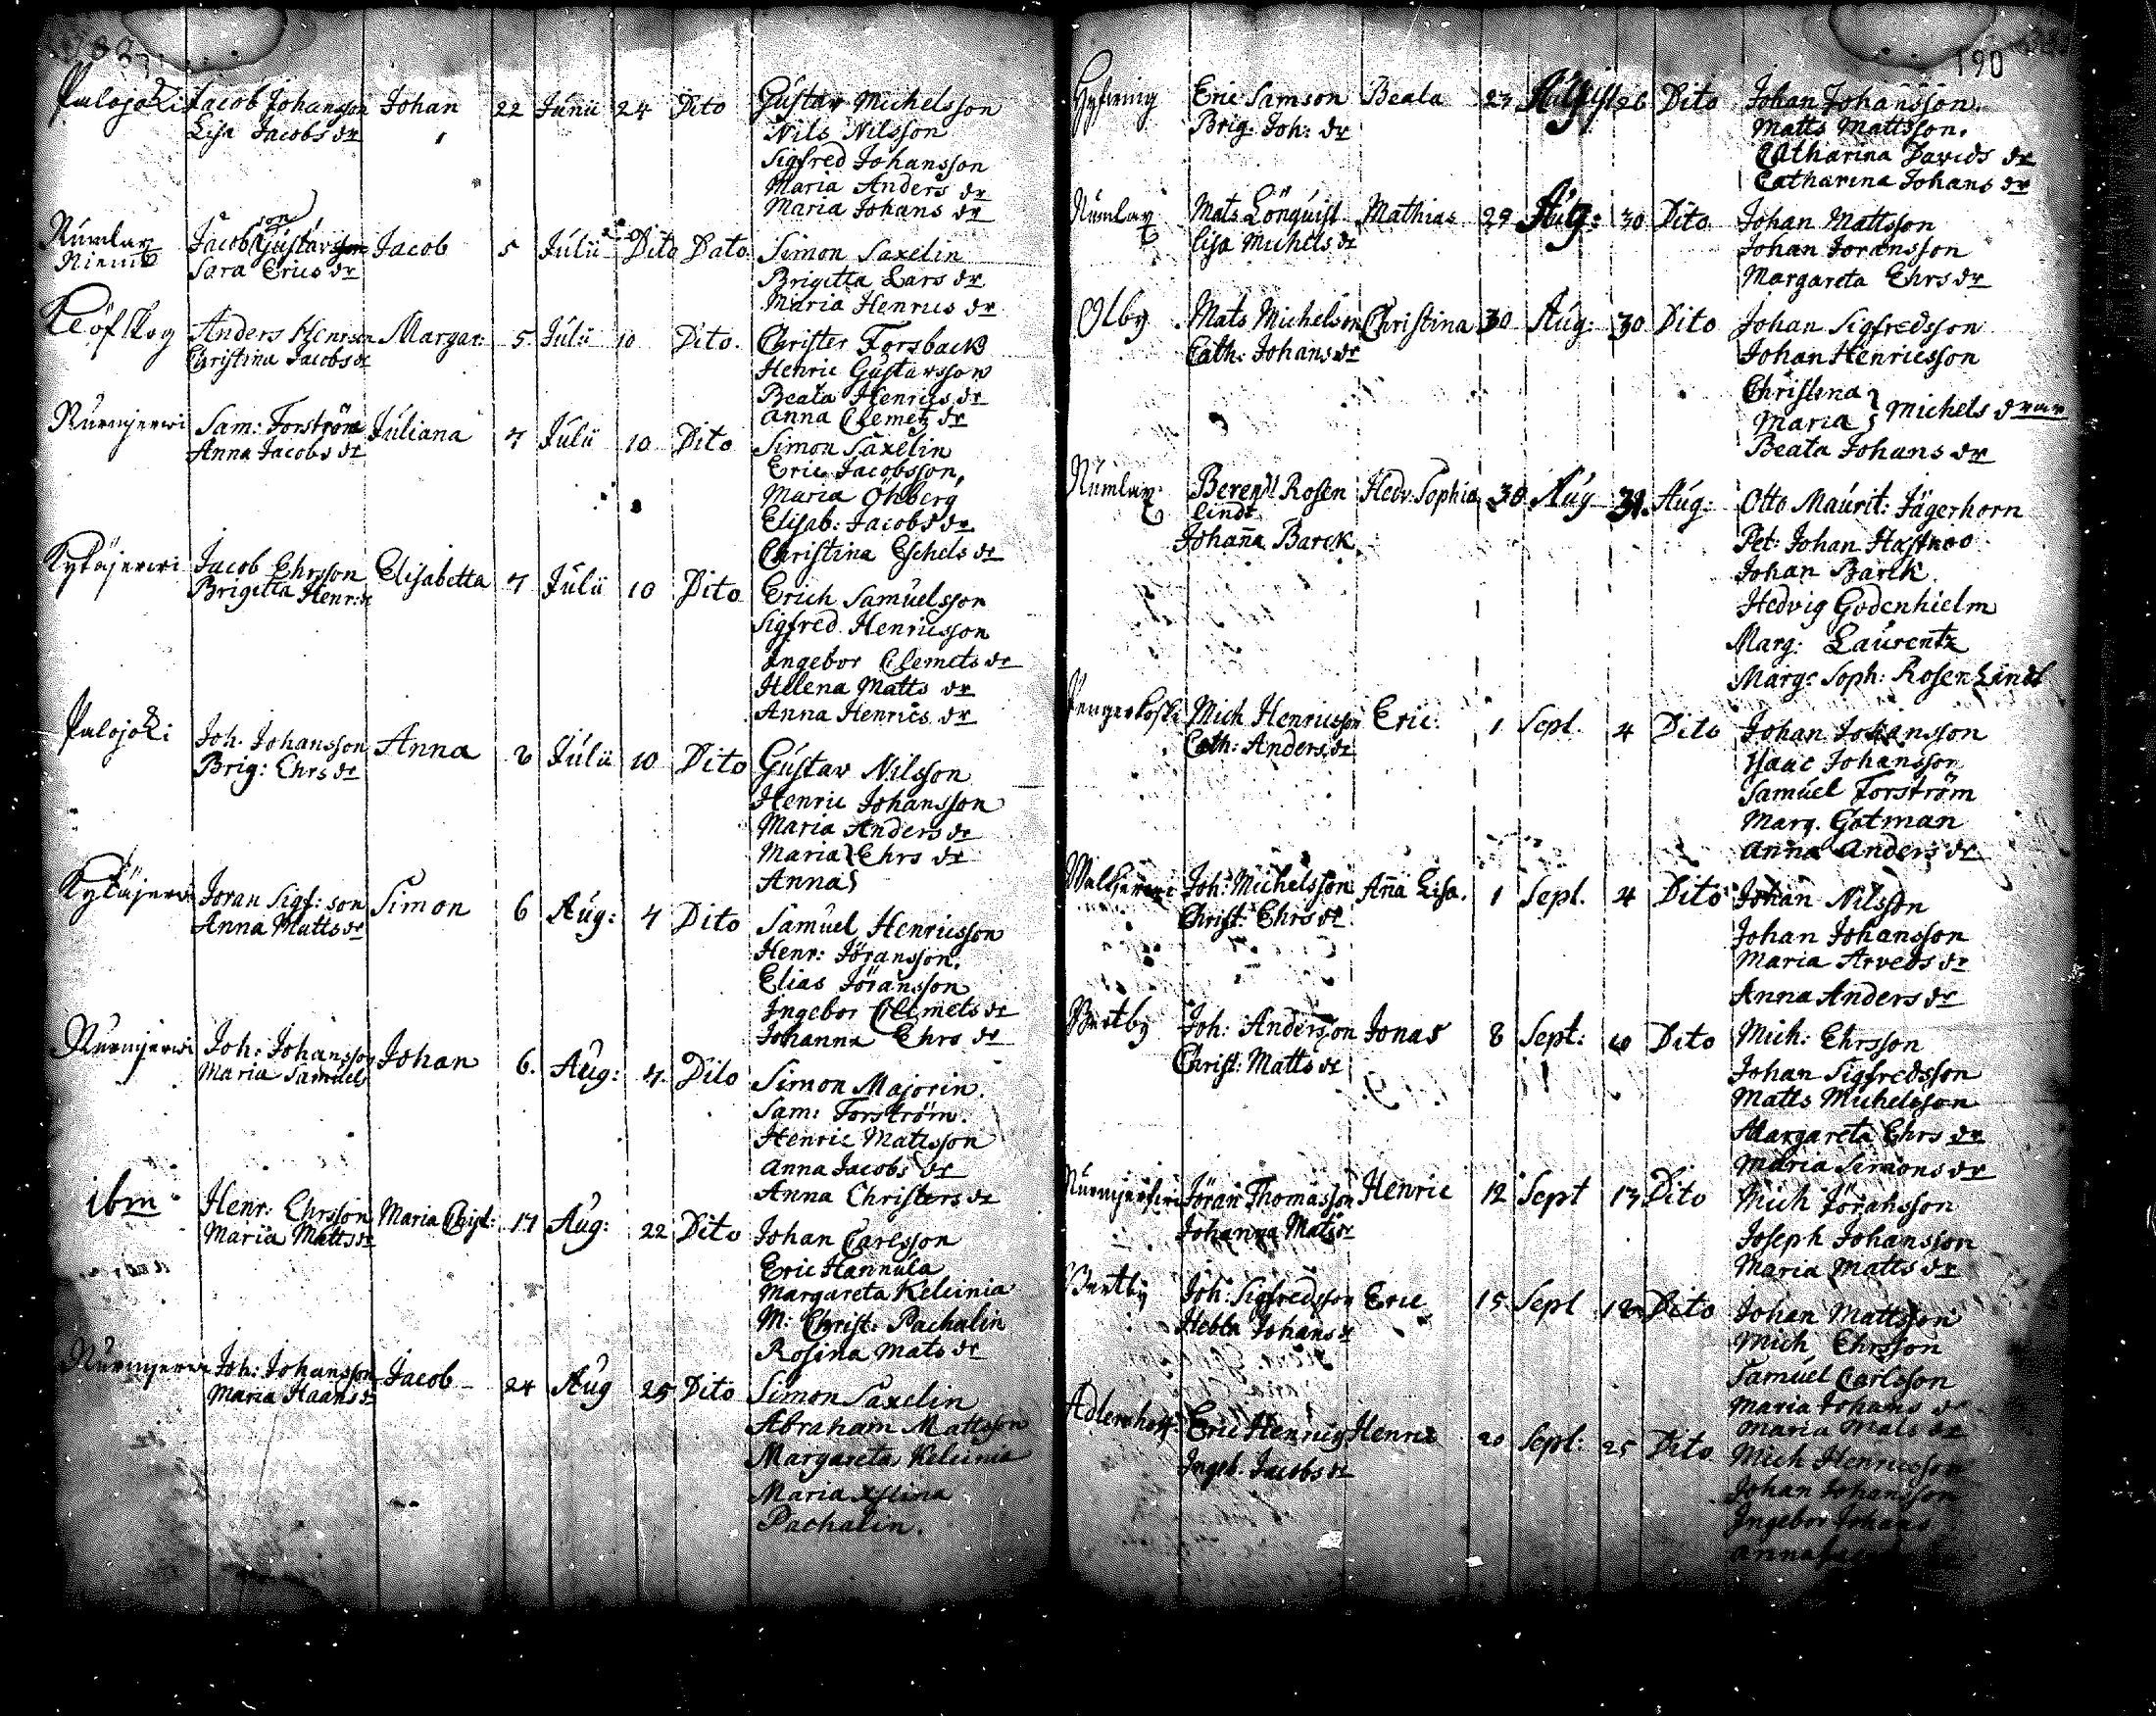 190
Palojoki Jacob Johansson Johan 22 Junii 24 Dito Gustav Michelsson
Lisa Jacobs dr Nils Nilsson
Sigfred Johansson
Maria Anders dr
Maria Johans dr
Numlax Jacob Gustavsson Jacob 5 Julii Dito Dato Simon Saxelin
Niemis Sara Erics dr Brigitta Lars dr
Maria Henrics dr
Klöfskog Anders Henrson Margar: 5 Julii 10 Dito Christer Forsback
Christina Jacobs dr Henric Gustavsson
Beata Henrics dr
Anna Clemetz dr
Nurmjerwi Sam: Forström Juliana 7 Julii 10 Dito Simon Saxelin
Anna Jacobs dr Eric Jacobsson
Maria Öhberg
Elisab: Jacobs dr
Christina Eschels dr
Kytäjerwi Jacob Ehrsson Elisabetta 7 Julii 10 Dito Erich Samuelsson
Brigitta Henr: dr Sigfred Henricsson
Ingebor Clemets dr
Helena Matts dr
Anna Henrics dr
Palojoki Joh. Johansson Anna 8 Julii 10 Dito Gustav Nilsson
Brig: Ehrs dr Henric Johansson
Maria Anders dr
Maria } Ehrs dr
Anna }
Kytäjerwi Joran Sigf: son Simon 6 Aug: 7 Dito Samuel Henricsson
Anna Matts dr Henr: Jöransson
Elias Jöransson
Ingebor Clemets dr
Johanna Ehrs dr
Nurmjerwi Joh: Johansson Johan 6. Aug: 7. Dito Simon Majorin
Maria Samuels Sam: Forström
Henric Mattsson
Anna Jacobs dr
Anna Christers dr
ibm Henr: Ehrsson Maria Christ: 17 Aug: 22 Dito Johan Carlsson
Maria Matts dr Eric Hannula
Margareta Keleinia
M: Christ: Pachalin
Rosina Mats dr
Nurmjerwi Joh: Johansson Jacob 24 Aug 25 Dito Simon Saxelin
Maria Haans dr Abraham Mattsson
Margareta Keleinia
Maria
Pachalin.
Eric Samson Beata 23 August 26 Dito Johan Johansson.
Brig: Joh: dr Matts Mattsson.
Catharina Davids dr
Catharina Johans dr
Numlax Mats Lönquist Mathias 29 Aug: 30 Dito Johan Mattsson
Lisa Michels dr Johan Joransson
Margareta Ehrs dr
Olby Mats Michelson Christina 30 Aug: 30 Dito Johan Sigfredsson
Cath: Johans dr Johan Henricsson
Christina }
Maria } Michels drar
Beata Johans dr
Numlax Berendt Rosen Hedv: Sophia 30 Aug 31. Aug: Otto Maurit: Jägerhorn
lindt Pet: Johan Hastfer
Johanna Barck Johan Barck
Hedvig Godenhielm
Marg: Laurentz
Marg: Soph: Rosen Lindt
Mich Henricsson Eric 1 Sept. 4 Dito Johan Johansson
Cath: Anders dr Isaac Johansson
Samuel Forström
Marg. Gotman
Anna Anders dr
Joh: Michelsson Aña Lisa. 1 Sept. 4 Dito Johan Nilsson
Christ: Ehrs dr Johan Johansson
Maria Arveds dr
Anna Anders dr
Joh: Andersson Jonas 8 Sept: 10 Dito Mich: Ehrsson
Christ: Matts dr Johan Sigfredsson
Matts Michelsson
Margareta Ehrs dr
Maria Simons dr
Nurmjerfwi Jöran Thomasson Henric 12 Sept 13 Dito Mich Jöransson
Johanna Mats dr Joseph Johansson
Maria Matts dr
Joh: Sigfredsson Eric 15 Sept Dito Johan Mattsson
Hebla Johans dr Mich Ehrsson
Samuel Carlsson
Maria Johans dr
Maria Mats dr
Eric Henrics Henric 20 Sept: 25 Dito Mich Henricsson
Ingeb. Jacobs dr Johan Johansson
Ingebor Johans
Anna